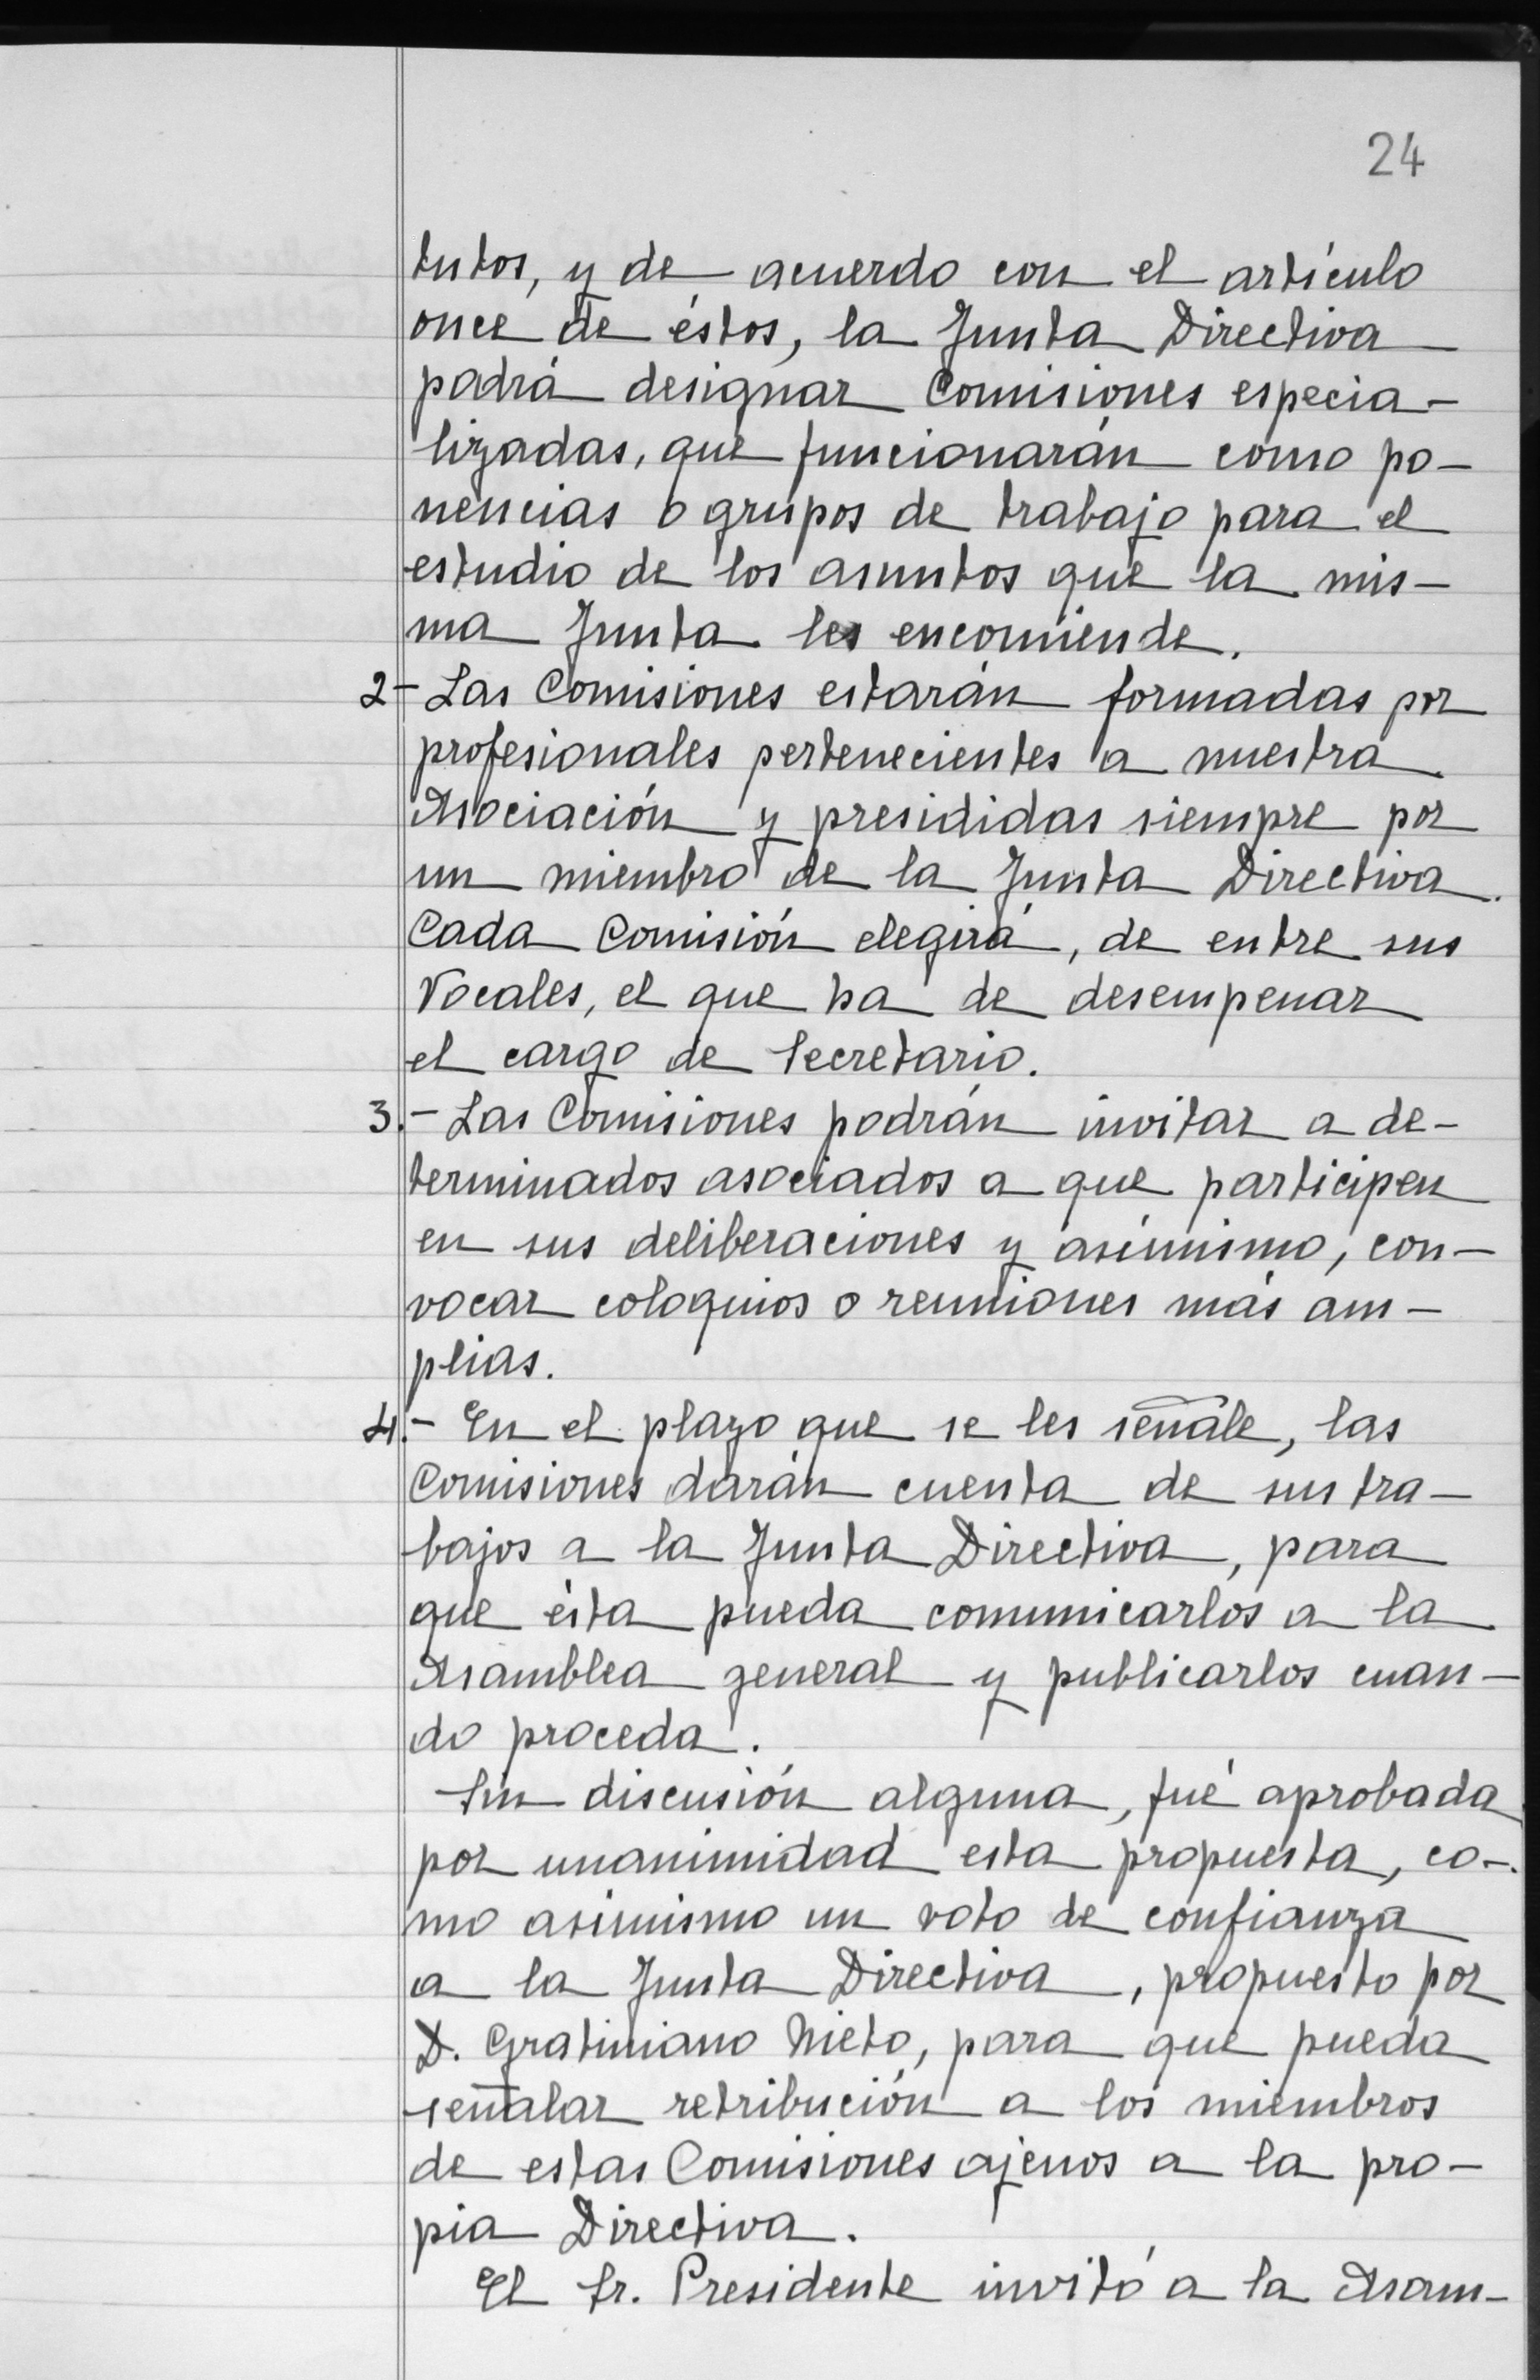 24
tutos, y de acuerdo con el artículo
once de éstos, la Junta Directiva
podrá designar Comisiones especia-
lizadas, que funcionarán como po-
nencias o grupos de trabajo para el
estudio de los asuntos que la mis-
ma Junta les encomiende.
2- Las Comisiones estarán formadas por
profesionales pertenecientes a nuestra
Asociación y presididas siempre por
un miembro de la Junta Directiva.
Cada Comisión elegirá, de entre sus
Vocales, el que ha de desempenar
el cargo de Secretario.
3.- Las Comisiones podrán invitar a de-
terminados asociados a que participen
en sus deliberaciones y asimismo, con-
vocar coloquios o reuniones más am-
plias.
4.- En el plazo que se les señale, las
Comisiones darán cuenta de sus tra-
bajos a la Junta Directiva, para
que ésta pueda comunicarlos a la
Asamblea general y publicarlos cuan-
do proceda.
Sin discusión alguna, fué aprobada
por unanimidad esta propuesta, co-
mo asimismo un voto de confianza
a la Junta Directiva, propuesto por
D. Gratiniano Nieto, para que pueda
señalar retribución a los miembros
de estas Comisiones ajenos a la pro-
pia Directiva.
El Sr. Presidente invitó a la Asam-